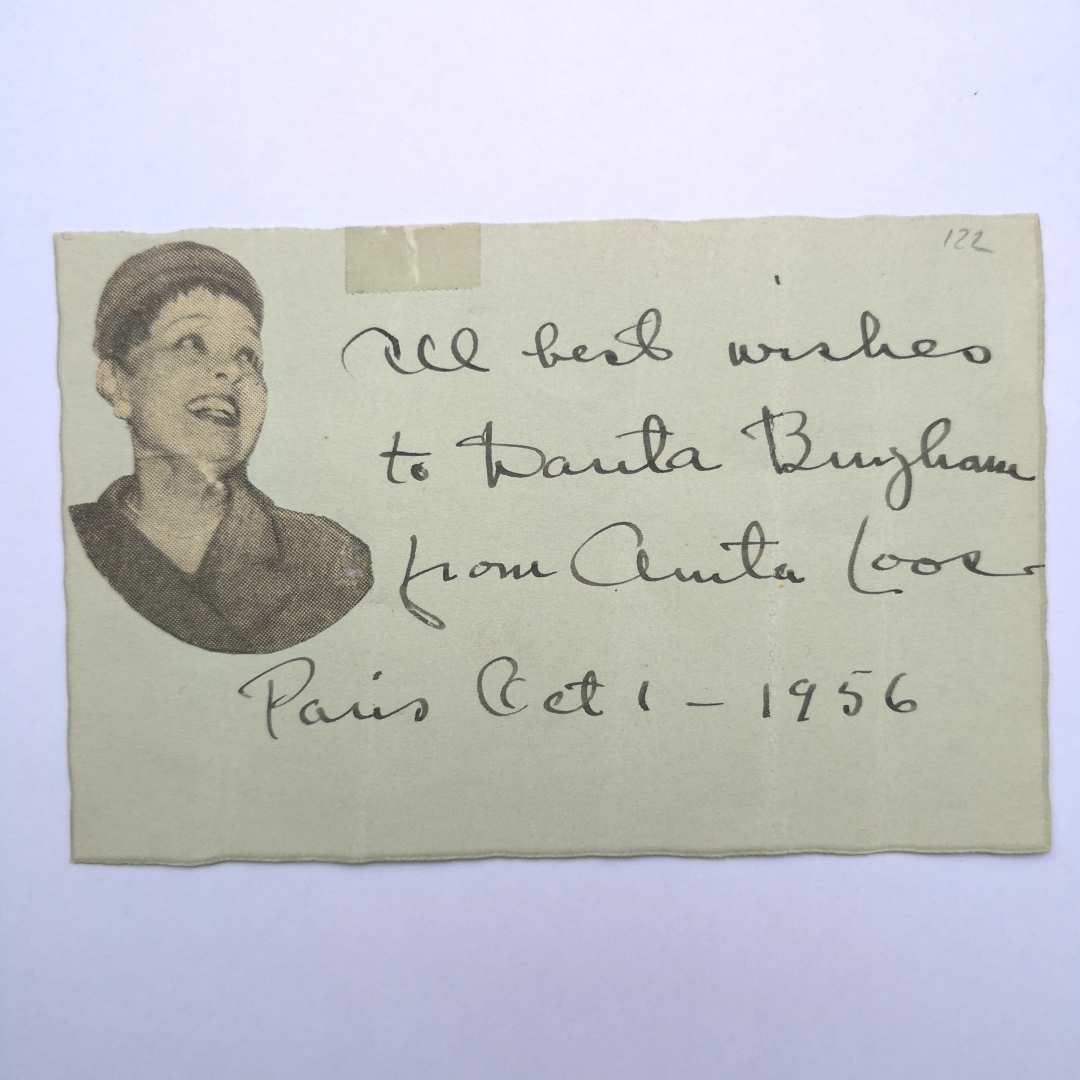 122
All best wishes
to Danita Bingham
from Anita Loos
Paris Oct 1 – 1956